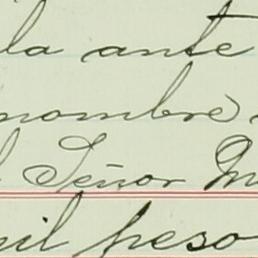 la ante
nombre
l Señor M
mil peso